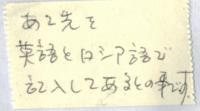 あて先を
英語とロシア語で
記入してあるとの事です